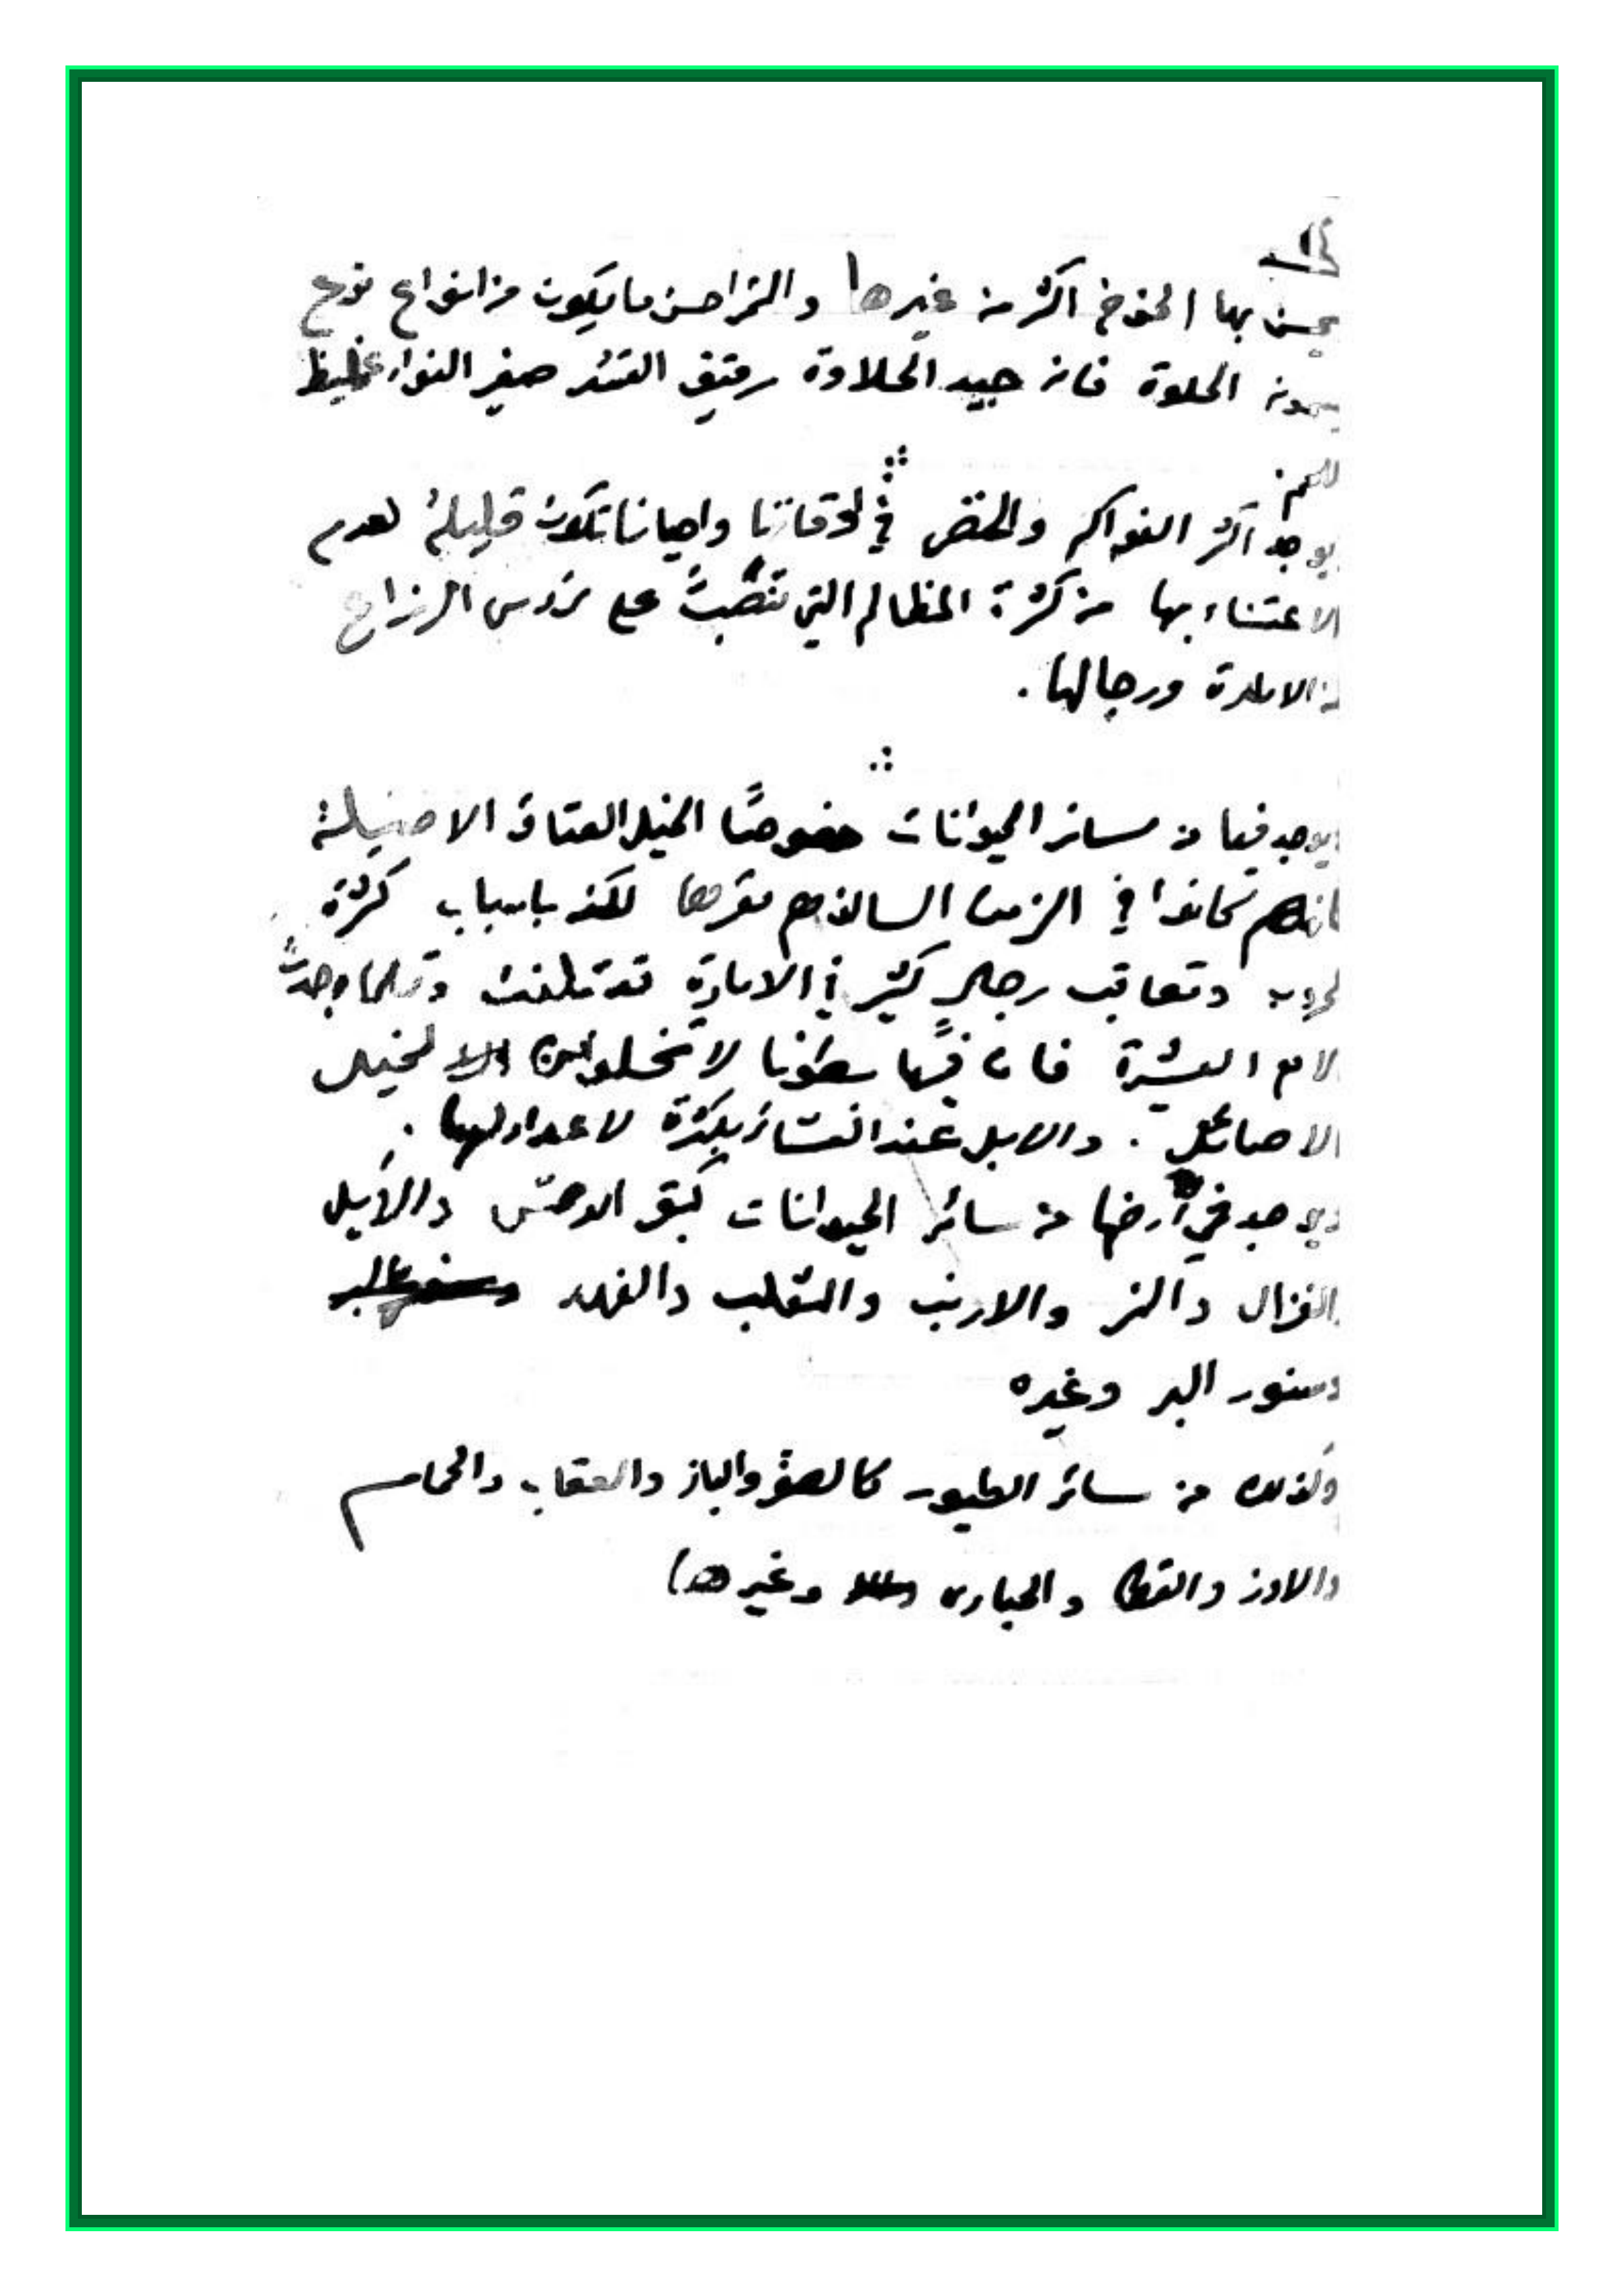 يحسن بها الخوخ اكثر من غيرها والتمر احسن ما يكون من انواع نوع
يسمونه الحلوة فانه جيد الحلاوة رقيق القشر صغير النواء غليظ
اللحم.
يوجد اكثر الفواكه والخضر في اوقاتنا واحيانا تكون قليلة لعدم
الاعتناء بها من كثرة المظالم التي تنصبّ على رؤس الزراع
من الامارة ورجالها.
ويوجد فيها من سائر الحيوانات خصوصًا الخيل العتاق الاصيلة
فانهم كانوا في الزمن السالف هم مقرها لكنه باسباب كثرة
الحروب وتعاقب رجال كثير في الامارة قد تلفت وقلما وجدت
الا مع العشيرة فان فيها بطونا لا تخلو من الخيل
الاصائل. والابل عند العشائر بكثرة لا عداد لها.
ويوجد في أرضها من سائر الحيوانات كبقر الوحش والأيل
والغزال والنمر والارنب والثعلب والفهد وسنور البر
وسنور البر وغيره
وكذلك من سائر الطيور كالصقر والباز والعقاب والحمام
والاوز والقطا والحبارى وغيرها